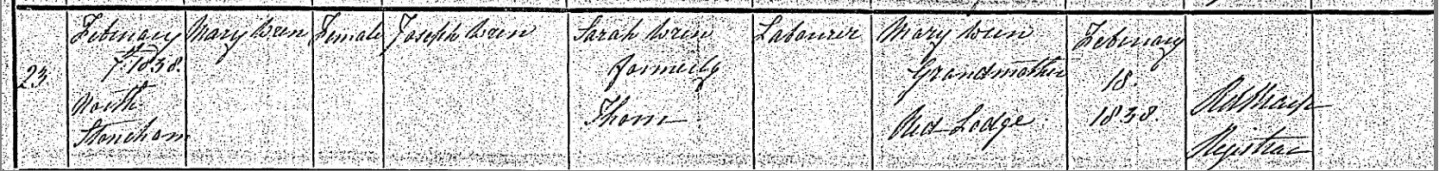 23
February
7 1838
North
Stoneham
Mary Wren
Female
Joseph Wren
Sarah Wren
formerly
Thorn
Labourer
Mary Wren
Grandmother
Red Lodge
February
18
1838
Registrar